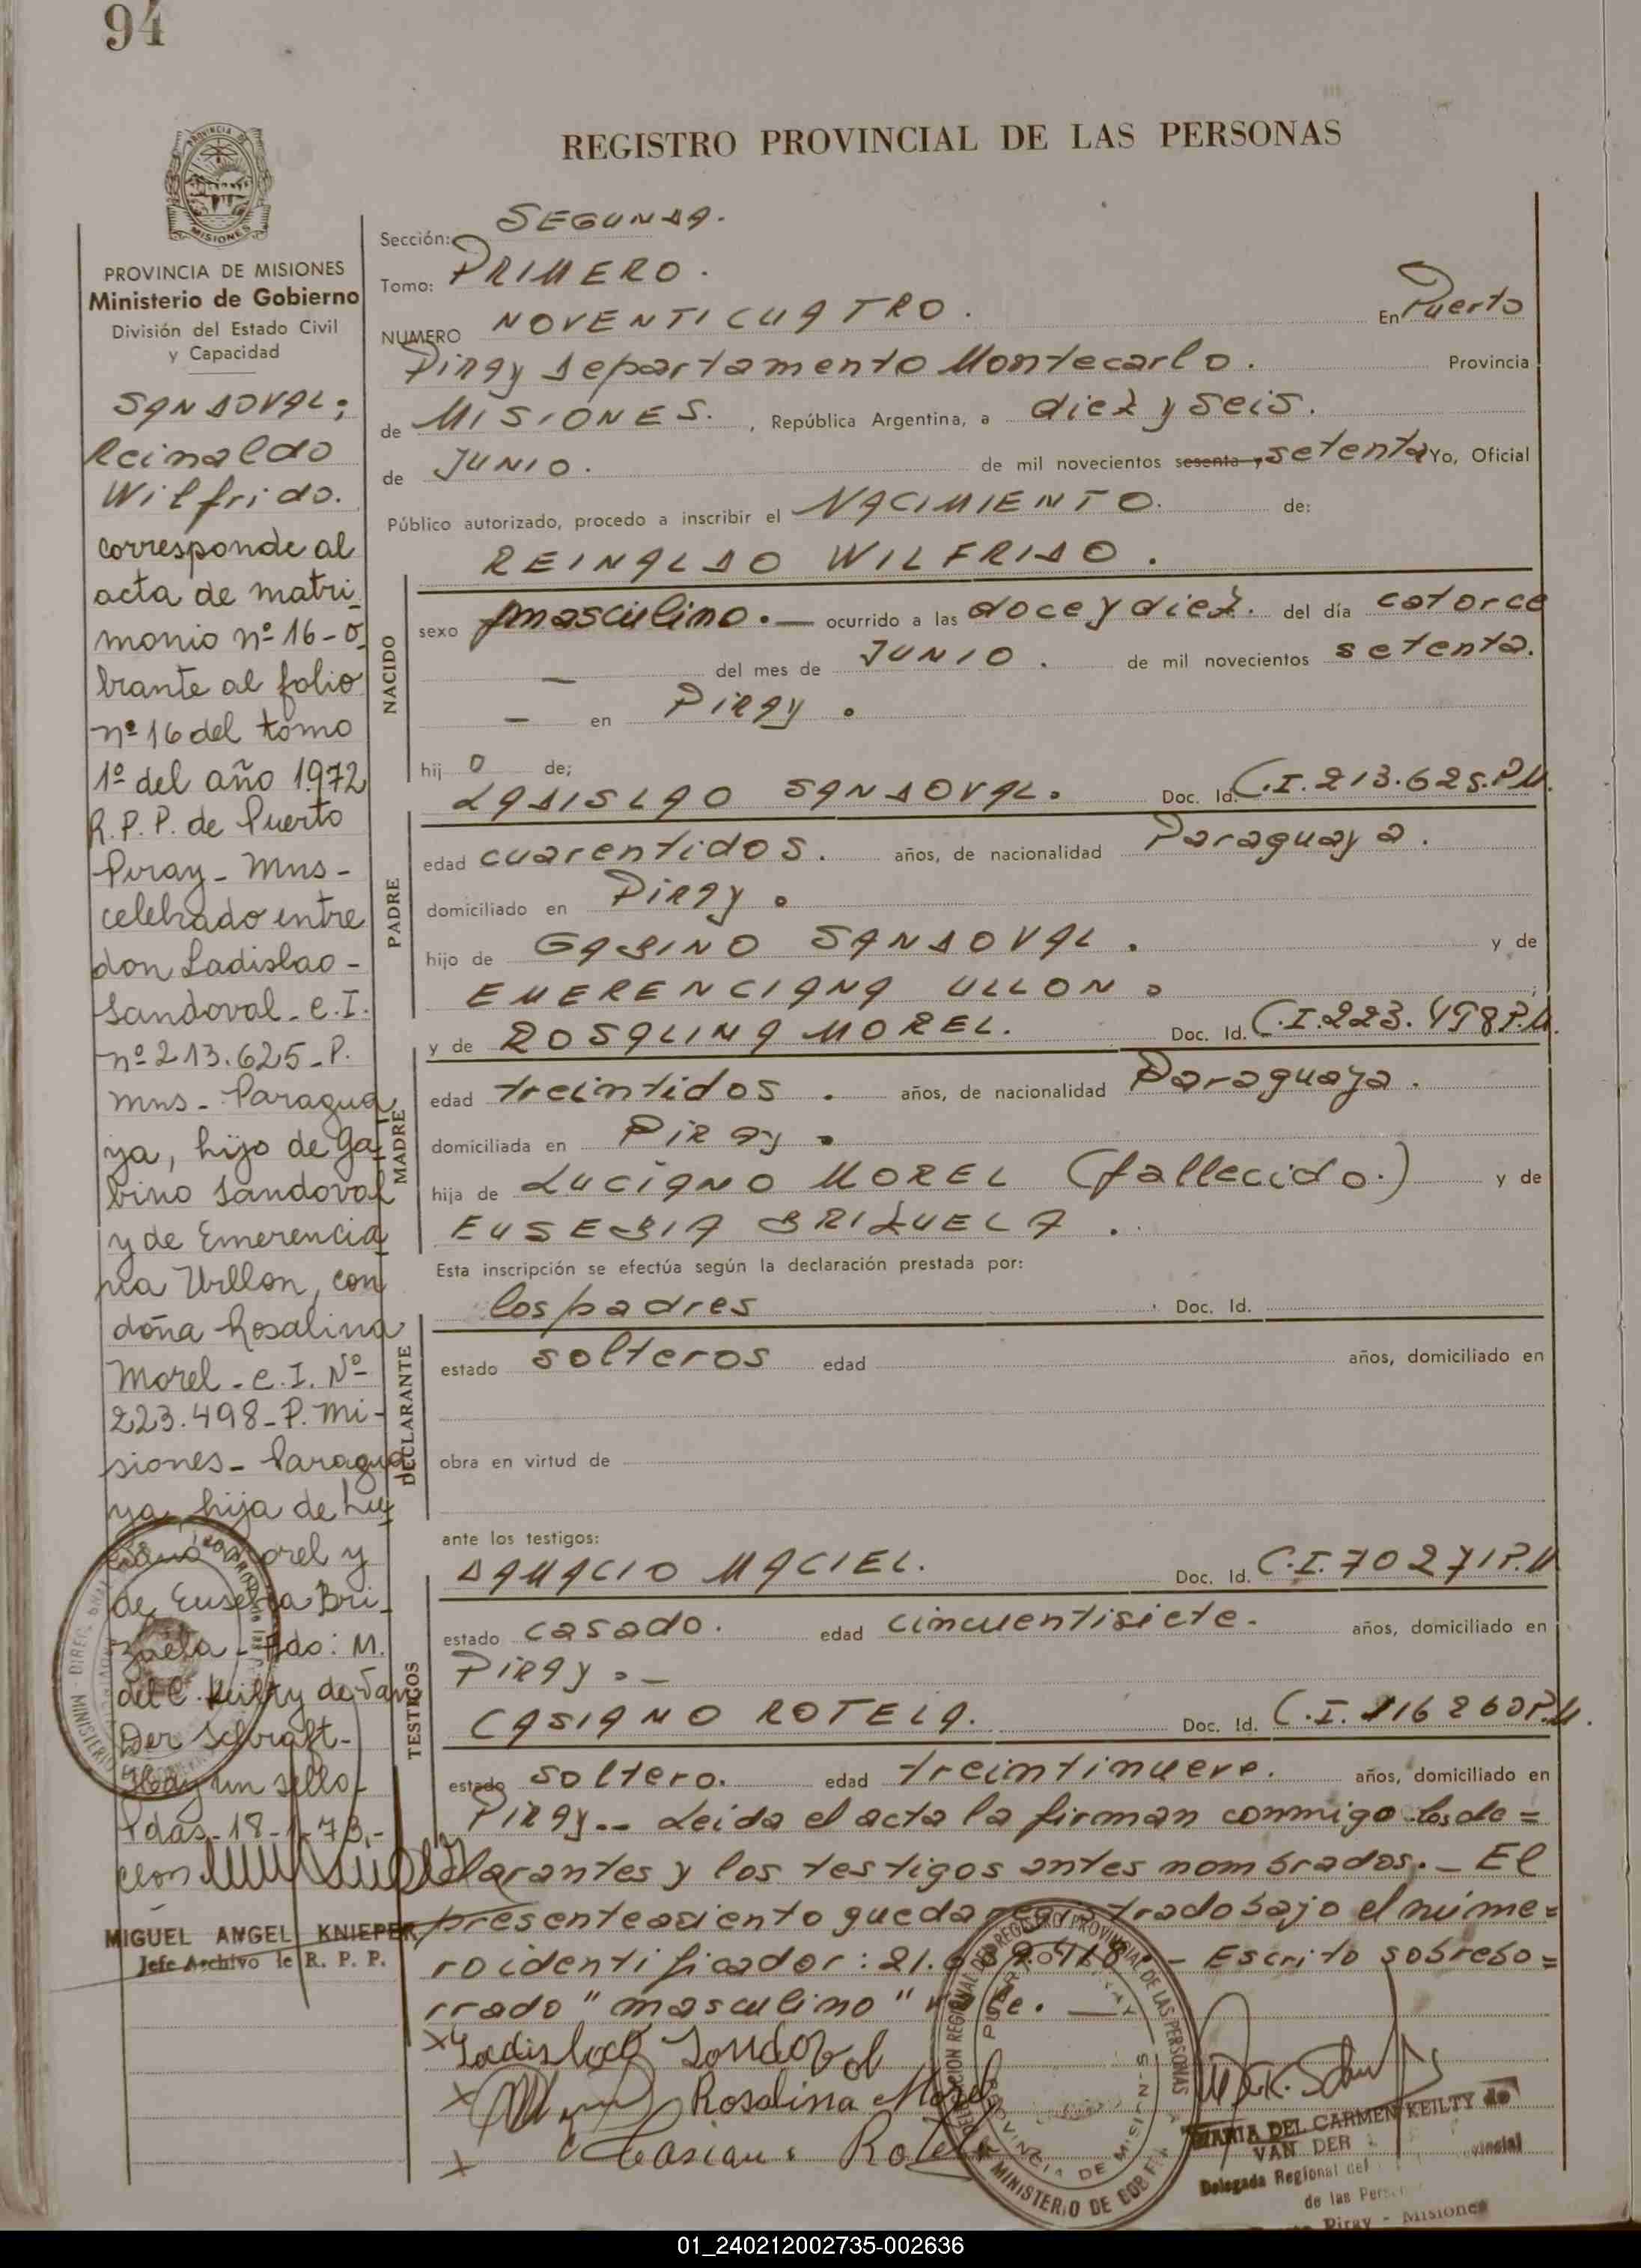 94
REGISTRO PROVINCIAL DE LAS PERSONAS
PROVINCIA DE MISIONES
Ministerio de Gobierno
División del Estado Civil
y Capacidad
SANDOVAL;
Reinaldo
Wilfrido.
corresponde al
acta de matri_
monio nº 16-o_
brante al folio
nº 16 del tomo
1º del año 1972
R.P.P. de Puerto
Piray - Mns -
celebrado entre
don Ladislao -
Sandoval - C.I.
nº 213.625 - P.
Mns - Paragua_
ya, hijo de Ga_
bino Sandoval
y de Emerencia_
na Urllon, con
doña Rosalina
Morel - C.I. Nº
223.498 - P. Mi-
siones - Paragua_
ya, hija de Lu_
ciano Morel y
de Eusebia Bri_
zuela - Fdo: M.
del C. Keilty de Van
Der
Hay un sello -
Pdas - 18-1-73.-
MIGUEL ANGEL KNIEPER
Jefe Archivo de R. P. P.
Sección: SEGUNDA.
Tomo: PRIMERO.
NUMERO NOVENTICUATRO. En Puerto
Piray Departamento Montecarlo. Provincia
de MISIONES. , República Argentina, a diez y seis.
de JUNIO. de mil novecientos sesenta y setenta Yo, Oficial
Público autorizado, procedo a inscribir el NACIMIENTO. de:
REINALDO WILFRIDO.
NACIDO
sexo masculino.— ocurrido a las doce y diez. del día catorce
— del mes de JUNIO. de mil novecientos setenta.
— en PIRAY.
hij o de;
LADISLAO SANDOVAL. Doc. Id. C.I.213.625.P.M.
PADRE
edad cuarentidos. años, de nacionalidad Paraguaya.
domiciliado en PIRAY.
hijo de GABINO SANDOVAL. y de
EMERENCIANA ULLON.
y de ROSALINA MOREL. Doc. Id. C.I.223.498P.M.
MADRE
edad treintidos. años, de nacionalidad Paraguaya.
domiciliada en PIRAY.
hija de LUCIANO MOREL (fallecido.) y de
EUSEBIA BRIZUELA.
Esta inscripción se efectúa según la declaración prestada por:
los padres Doc. Id.
DECLARANTE
estado solteros edad años, domiciliado en
obra en virtud de
ante los testigos:
DAMACIO MACIEL. Doc. Id. C.I.70271P.M
TESTIGOS
estado casado. edad cincuentisiete. años, domiciliado en
PIRAY.—
CASIANO ROTELA. Doc. Id. C.I. 116260P.M.
estado soltero. edad treintinueve. años, domiciliado en
PIRAY.- Leida el acta la firman conmigo los de=
clarantes y los testigos antes nombrados.- El
presente asiento queda registrado bajo el núme=
ro identificador: 21. - Escrito sobrebo=
rrado "masculino" Vale. —
x Ladislao Sandoval
x Rosalina Morel
x Casiano Rotela
MARIA DEL CARMEN KEILTY de
VAN DER
Delegada Regional del
de las
Piray - Misiones
01_240212002735-002636